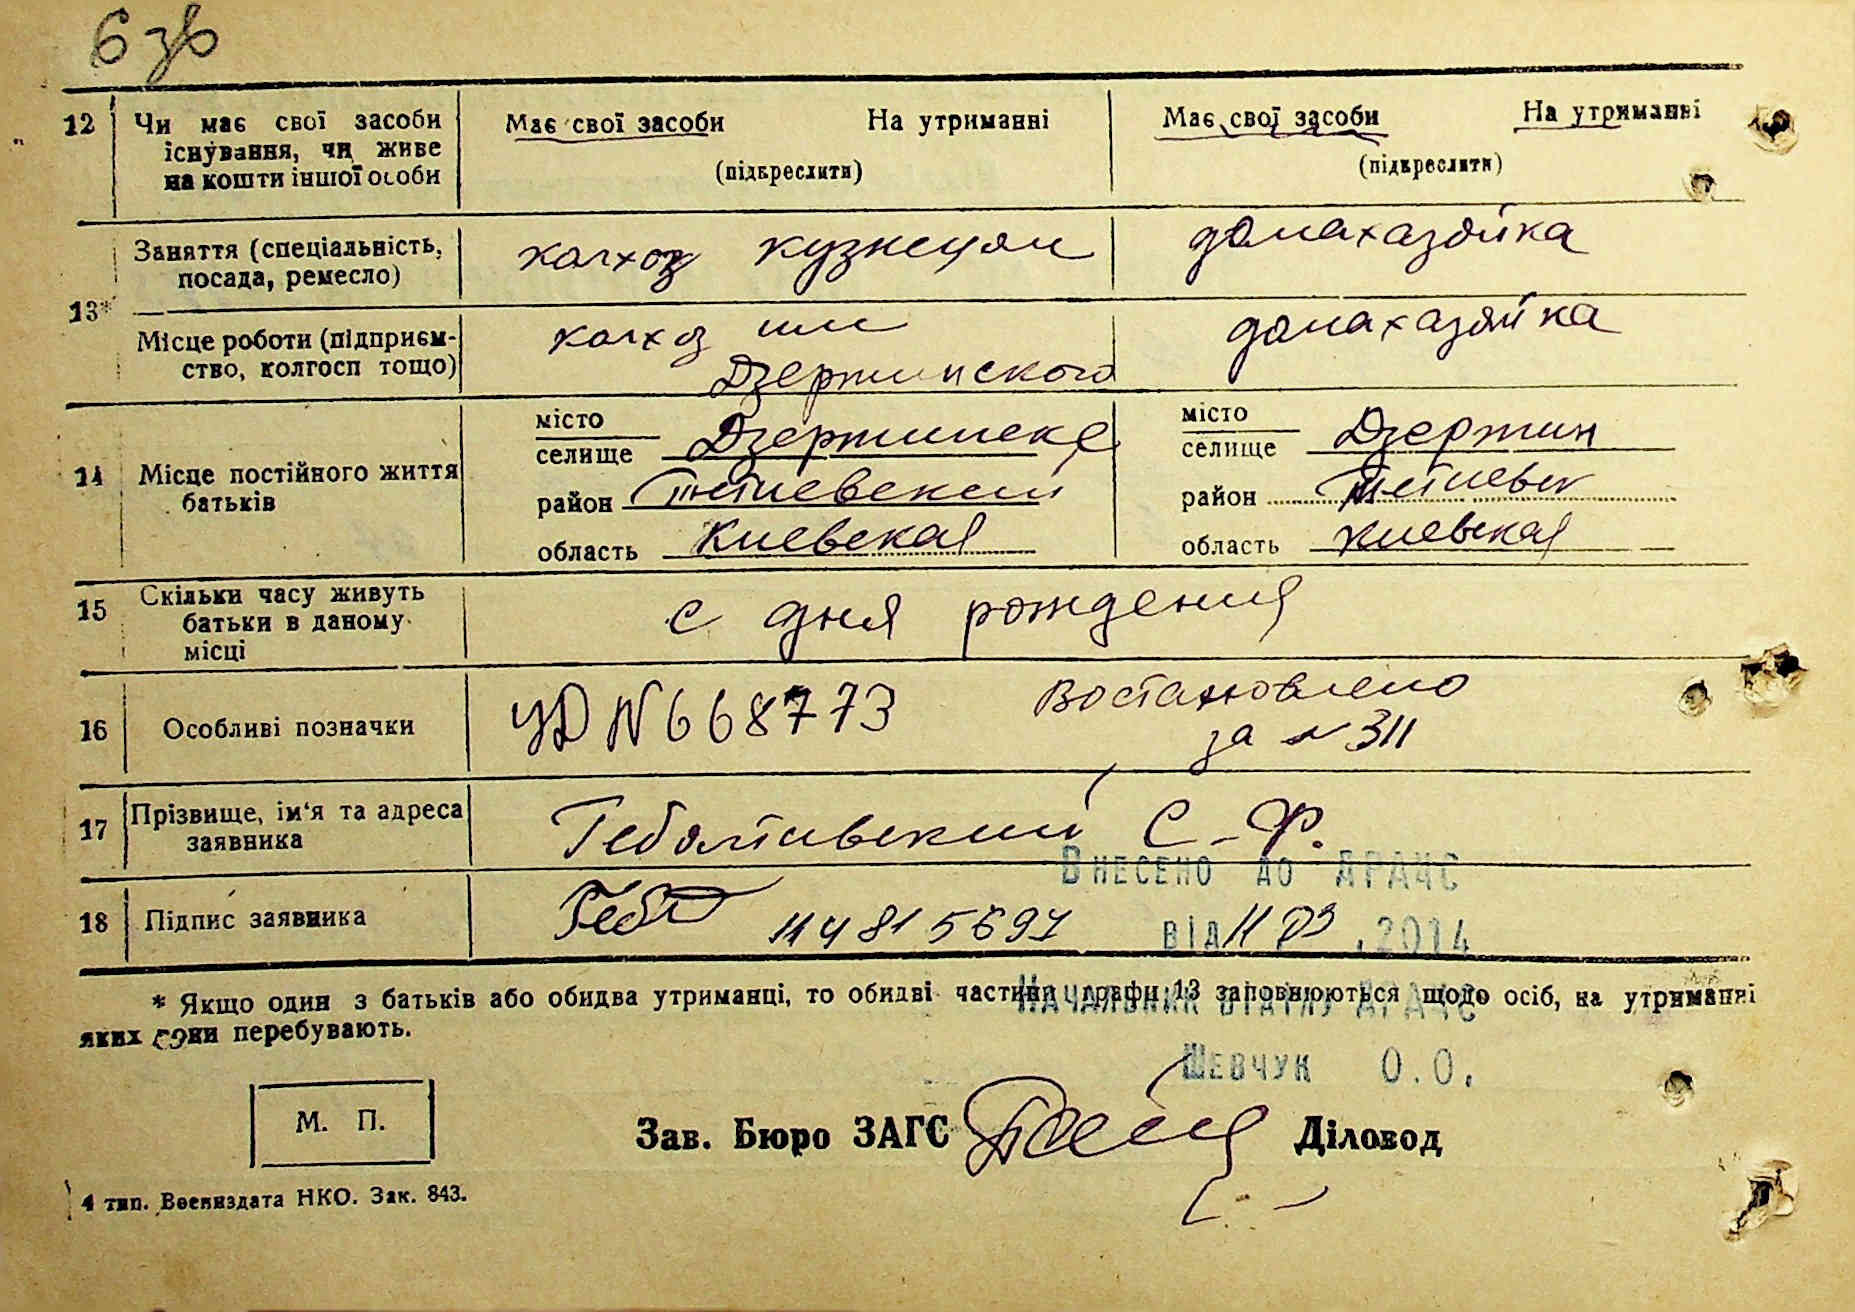 6 зв
12 Чи має свої засоби існування, чи живе на кошти іншої особи
Має свої засоби На утриманні
(підкреслити)
Має свої засоби На утриманні
(підкреслити)
13*
Заняття (спеціальність, посада, ремесло)
колхоз кузнецом
домахазяйка
Місце роботи (підприєм-
ство, колгосп тощо)
колхоз им
Дзержинского
домахазяйка
14 Місце постійного життя
батьків
місто
селище Дзержинске
район Тетиевский
область Киевская
місто
селище Дзержин
район Тетиевск
область Киевская
15 Скільки часу живуть
батьки в даному
місці
с дня рождения
16 Особливі позначки
УД N 668773
Востановлено
за № 311
17 Прізвище, ім'я та адреса
заявника
С. Ф.
18 Підпис заявника
Внесено до ДРАЦС
від 11 03 .2014
Начальник відділу ДРАЦС
Шевчук О.О.
* Якщо один з батьків або обидва утриманці, то обидві частини графи 13 заповнюються щодо осіб, на утриманні
яких вони перебувають.
М. П.
Зав. Бюро ЗАГС
Діловод
4 тип. Воениздата НКО. Зак. 843.